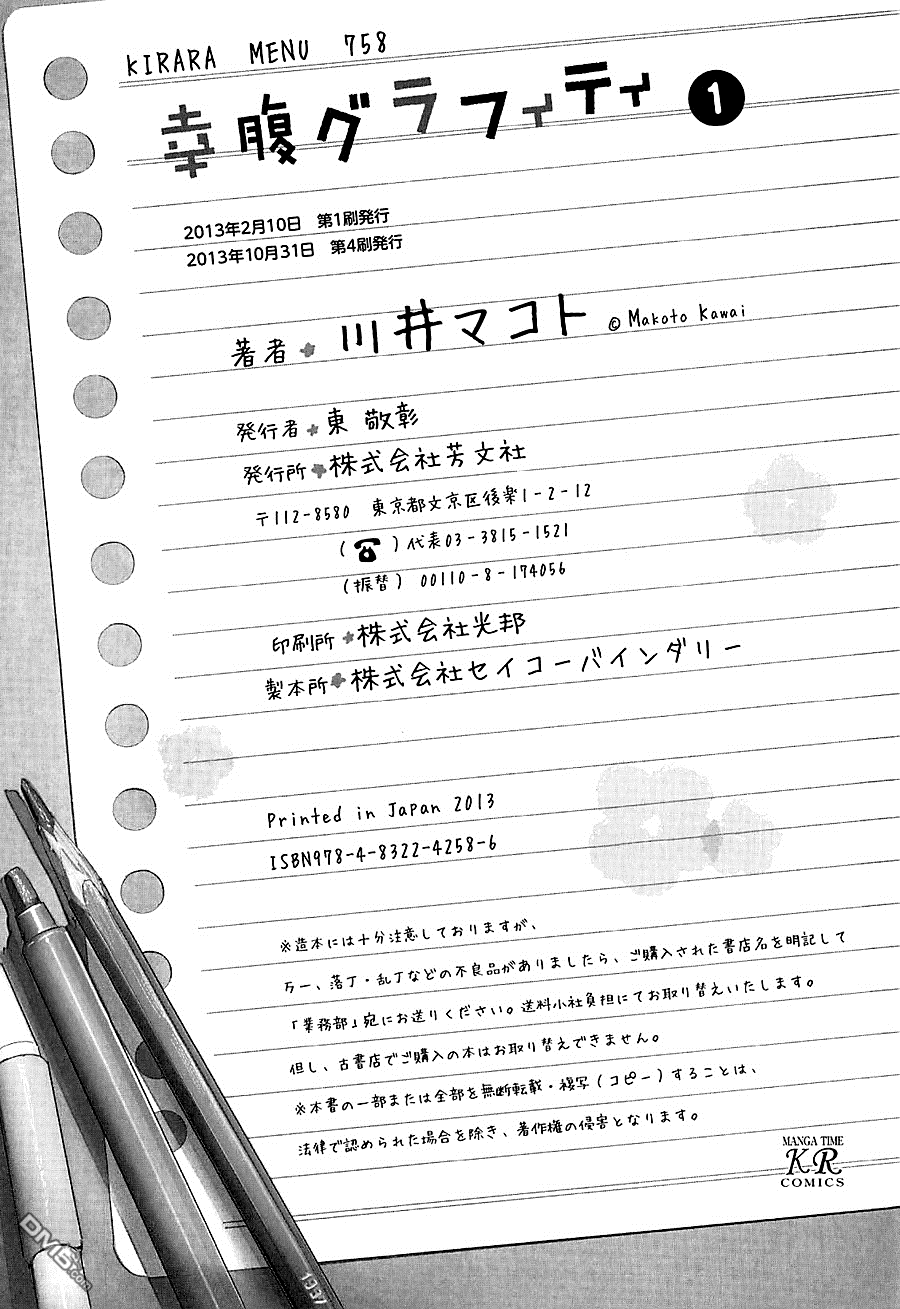 KIRARA MENU 758
幸腹グラフィティ 1
2013年2月10日 第1刷発行
2013年10月31日 第4刷発行
著者 川井マコト © Makoto Kawai
発行者 東 敬彰
発行所 株式会社芳文社
〒112-8580 東京都文京区後楽1-2-12
(☎)代表03-3815-1521
(振替) 00110-8-174056
印刷所 株式会社光邦
製本所 株式会社セイコーバインダリー
Printed in Japan 2013
ISBN978-4-8322-4258-6
※造本には十分注意しておりますが、
万一、落丁・乱丁などの不良品がありましたら、ご購入された書店名を明記して
「業務部」宛にお送りください。送料小社負担にてお取り替えいたします。
但し、古書店でご購入の本はお取り替えできません。
※本書の一部または全部を無断転載・複写(コピー)することは、
法律で認められた場合を除き、著作権の侵害となります。
MANGA TIME
KR
COMICS
DM5.com
1937